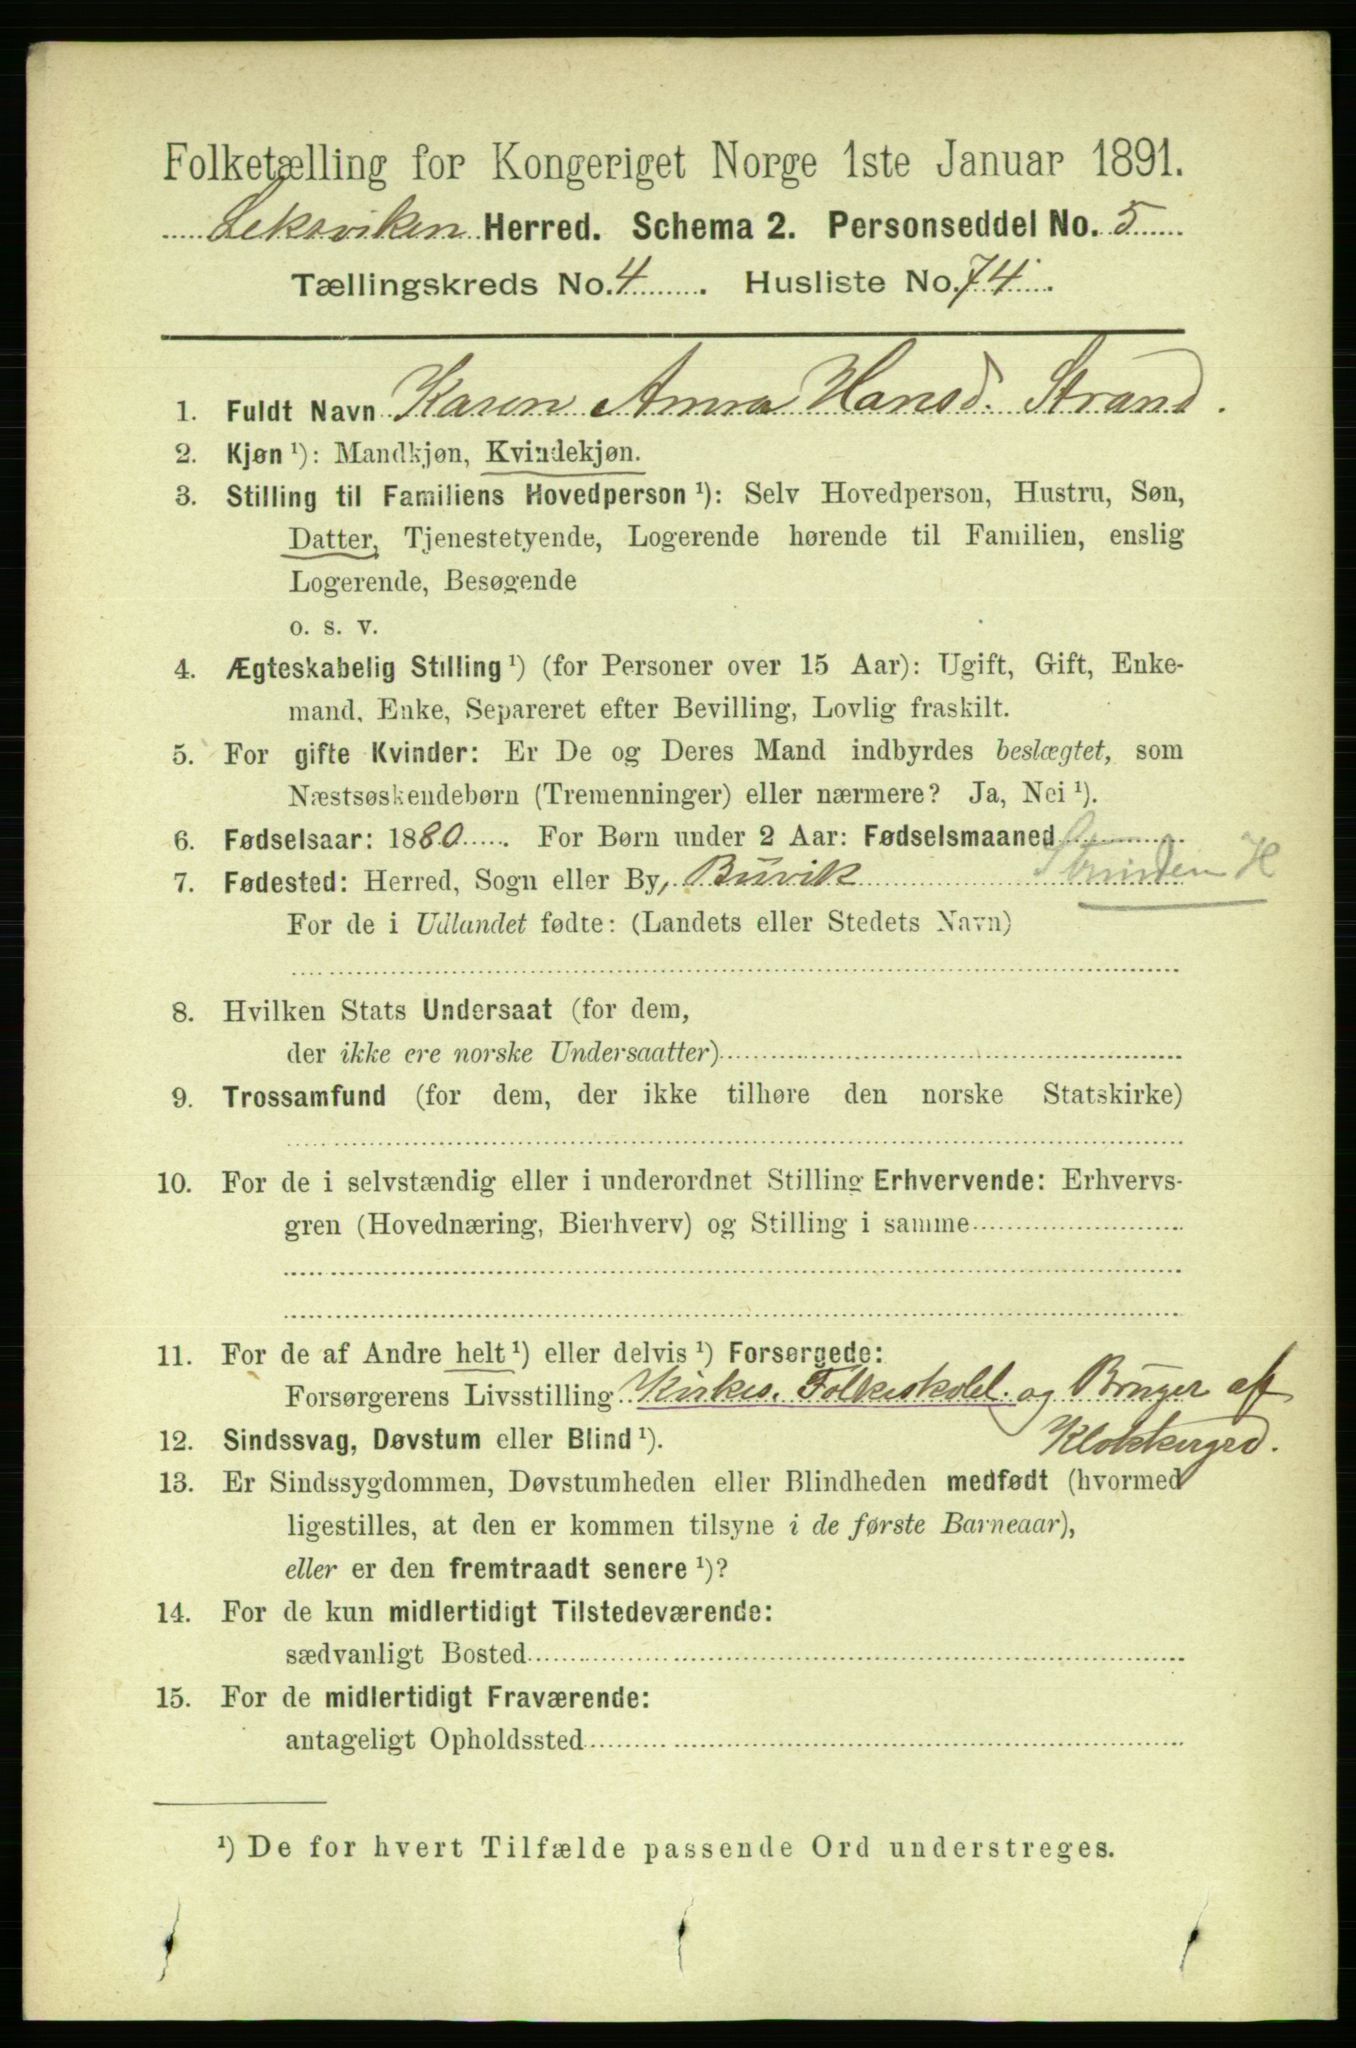 Folketælling for Kongeriget Norge 1ste Januar 1891.
Leksviken Herred. Schema 2. Personseddel No. 5
Tællingskreds No. 4. Husliste No. 74.
1. Fuldt Navn Karen Anna Hansd. Strand.
2. Kjøn ¹): Mandkjøn, Kvindekjøn.
3. Stilling til Familiens Hovedperson ¹): Selv Hovedperson, Hustru, Søn,
Datter, Tjenestetyende, Logerende hørende til Familien, enslig
Logerende, Besøgende
o. s. v.
4. Ægteskabelig Stilling ¹) (for Personer over 15 Aar): Ugift, Gift, Enke-
mand, Enke, Separeret efter Bevilling, Lovlig fraskilt.
5. For gifte Kvinder: Er De og Deres Mand indbyrdes beslægtet, som
Næstsøskendebørn (Tremenninger) eller nærmere? Ja, Nei ¹).
6. Fødselsaar: 1880. For Børn under 2 Aar: Fødselsmaaned
7. Fødested: Herred, Sogn eller By, Buvik Strinden H
For de i Udlandet fødte: (Landets eller Stedets Navn)
8. Hvilken Stats Undersaat (for dem,
der ikke ere norske Undersaatter)
9. Trossamfund (for dem, der ikke tilhøre den norske Statskirke)
10. For de i selvstændig eller i underordnet Stilling Erhvervende: Erhvervs-
gren (Hovednæring, Bierhverv) og Stilling i samme
11. For de af Andre helt ¹) eller delvis ¹) Forsørgede:
Forsørgerens Livsstilling Kirkes. Folkeskolel. og Bruger af
12. Sindssvag, Døvstum eller Blind ¹). Klokkergrd.
13. Er Sindssygdommen, Døvstumheden eller Blindheden medfødt (hvormed
ligestilles, at den er kommen tilsyne i de første Barneaar),
eller er den fremtraadt senere ¹)?
14. For de kun midlertidigt Tilstedeværende:
sædvanligt Bosted
15. For de midlertidigt Fraværende:
antageligt Opholdssted
¹) De for hvert Tilfælde passende Ord understreges.